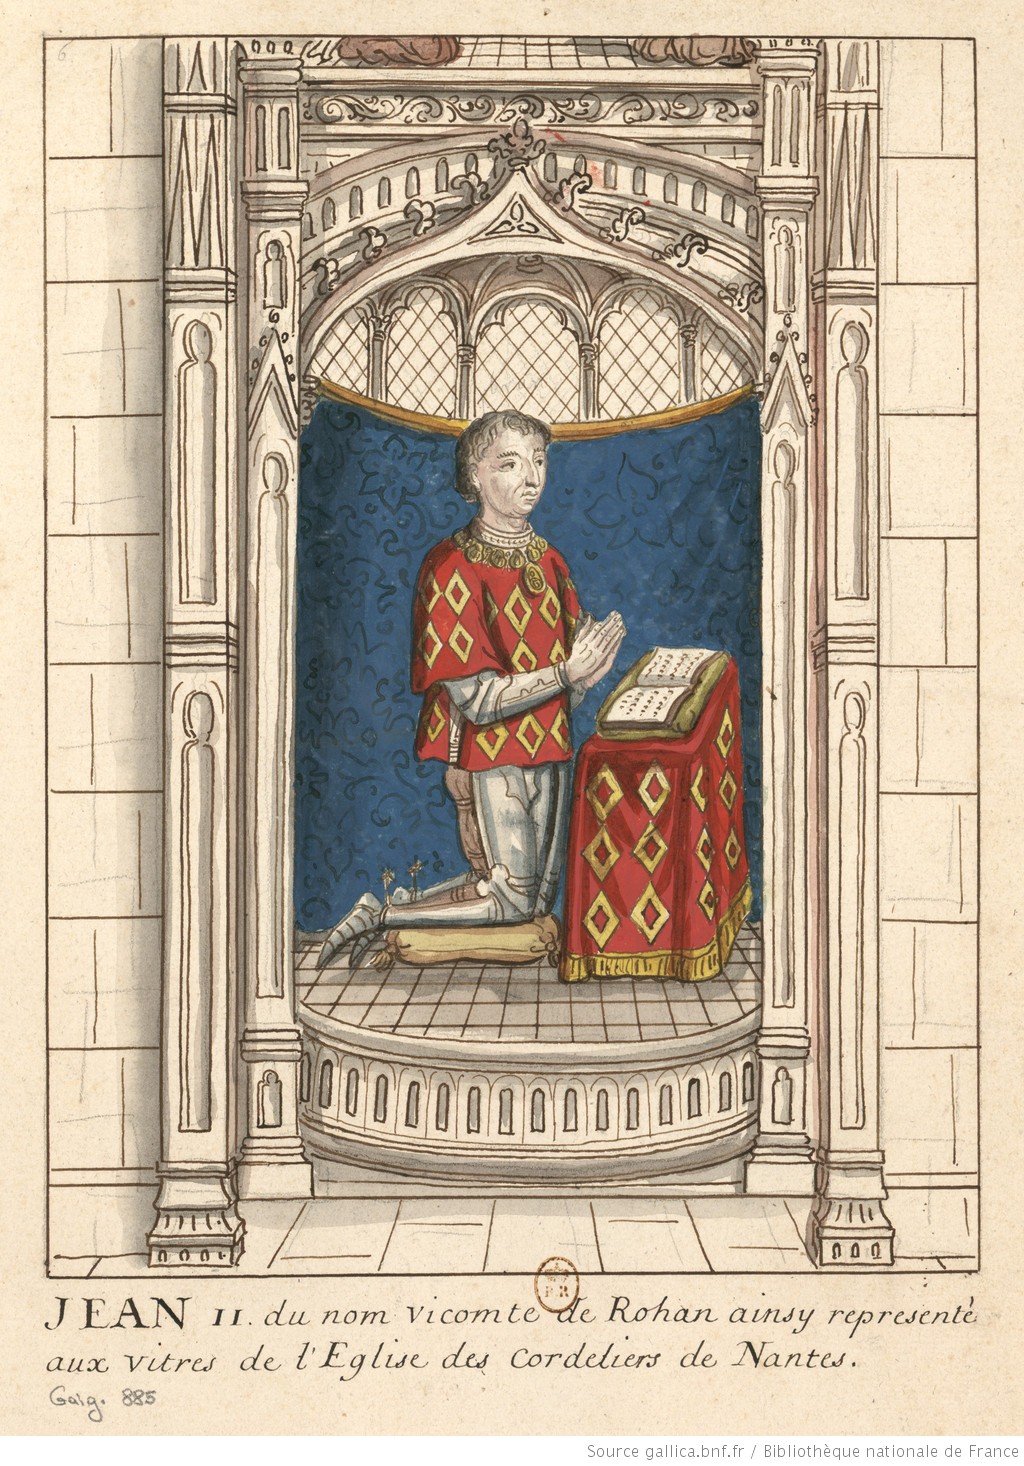 JEAN II. du nom vicomte de Rohan ainsy representé
aux vitres de l'Eglise des Cordeliers de Nantes.
Gaig. 885
Source gallica.bnf.fr / Bibliothèque nationale de France